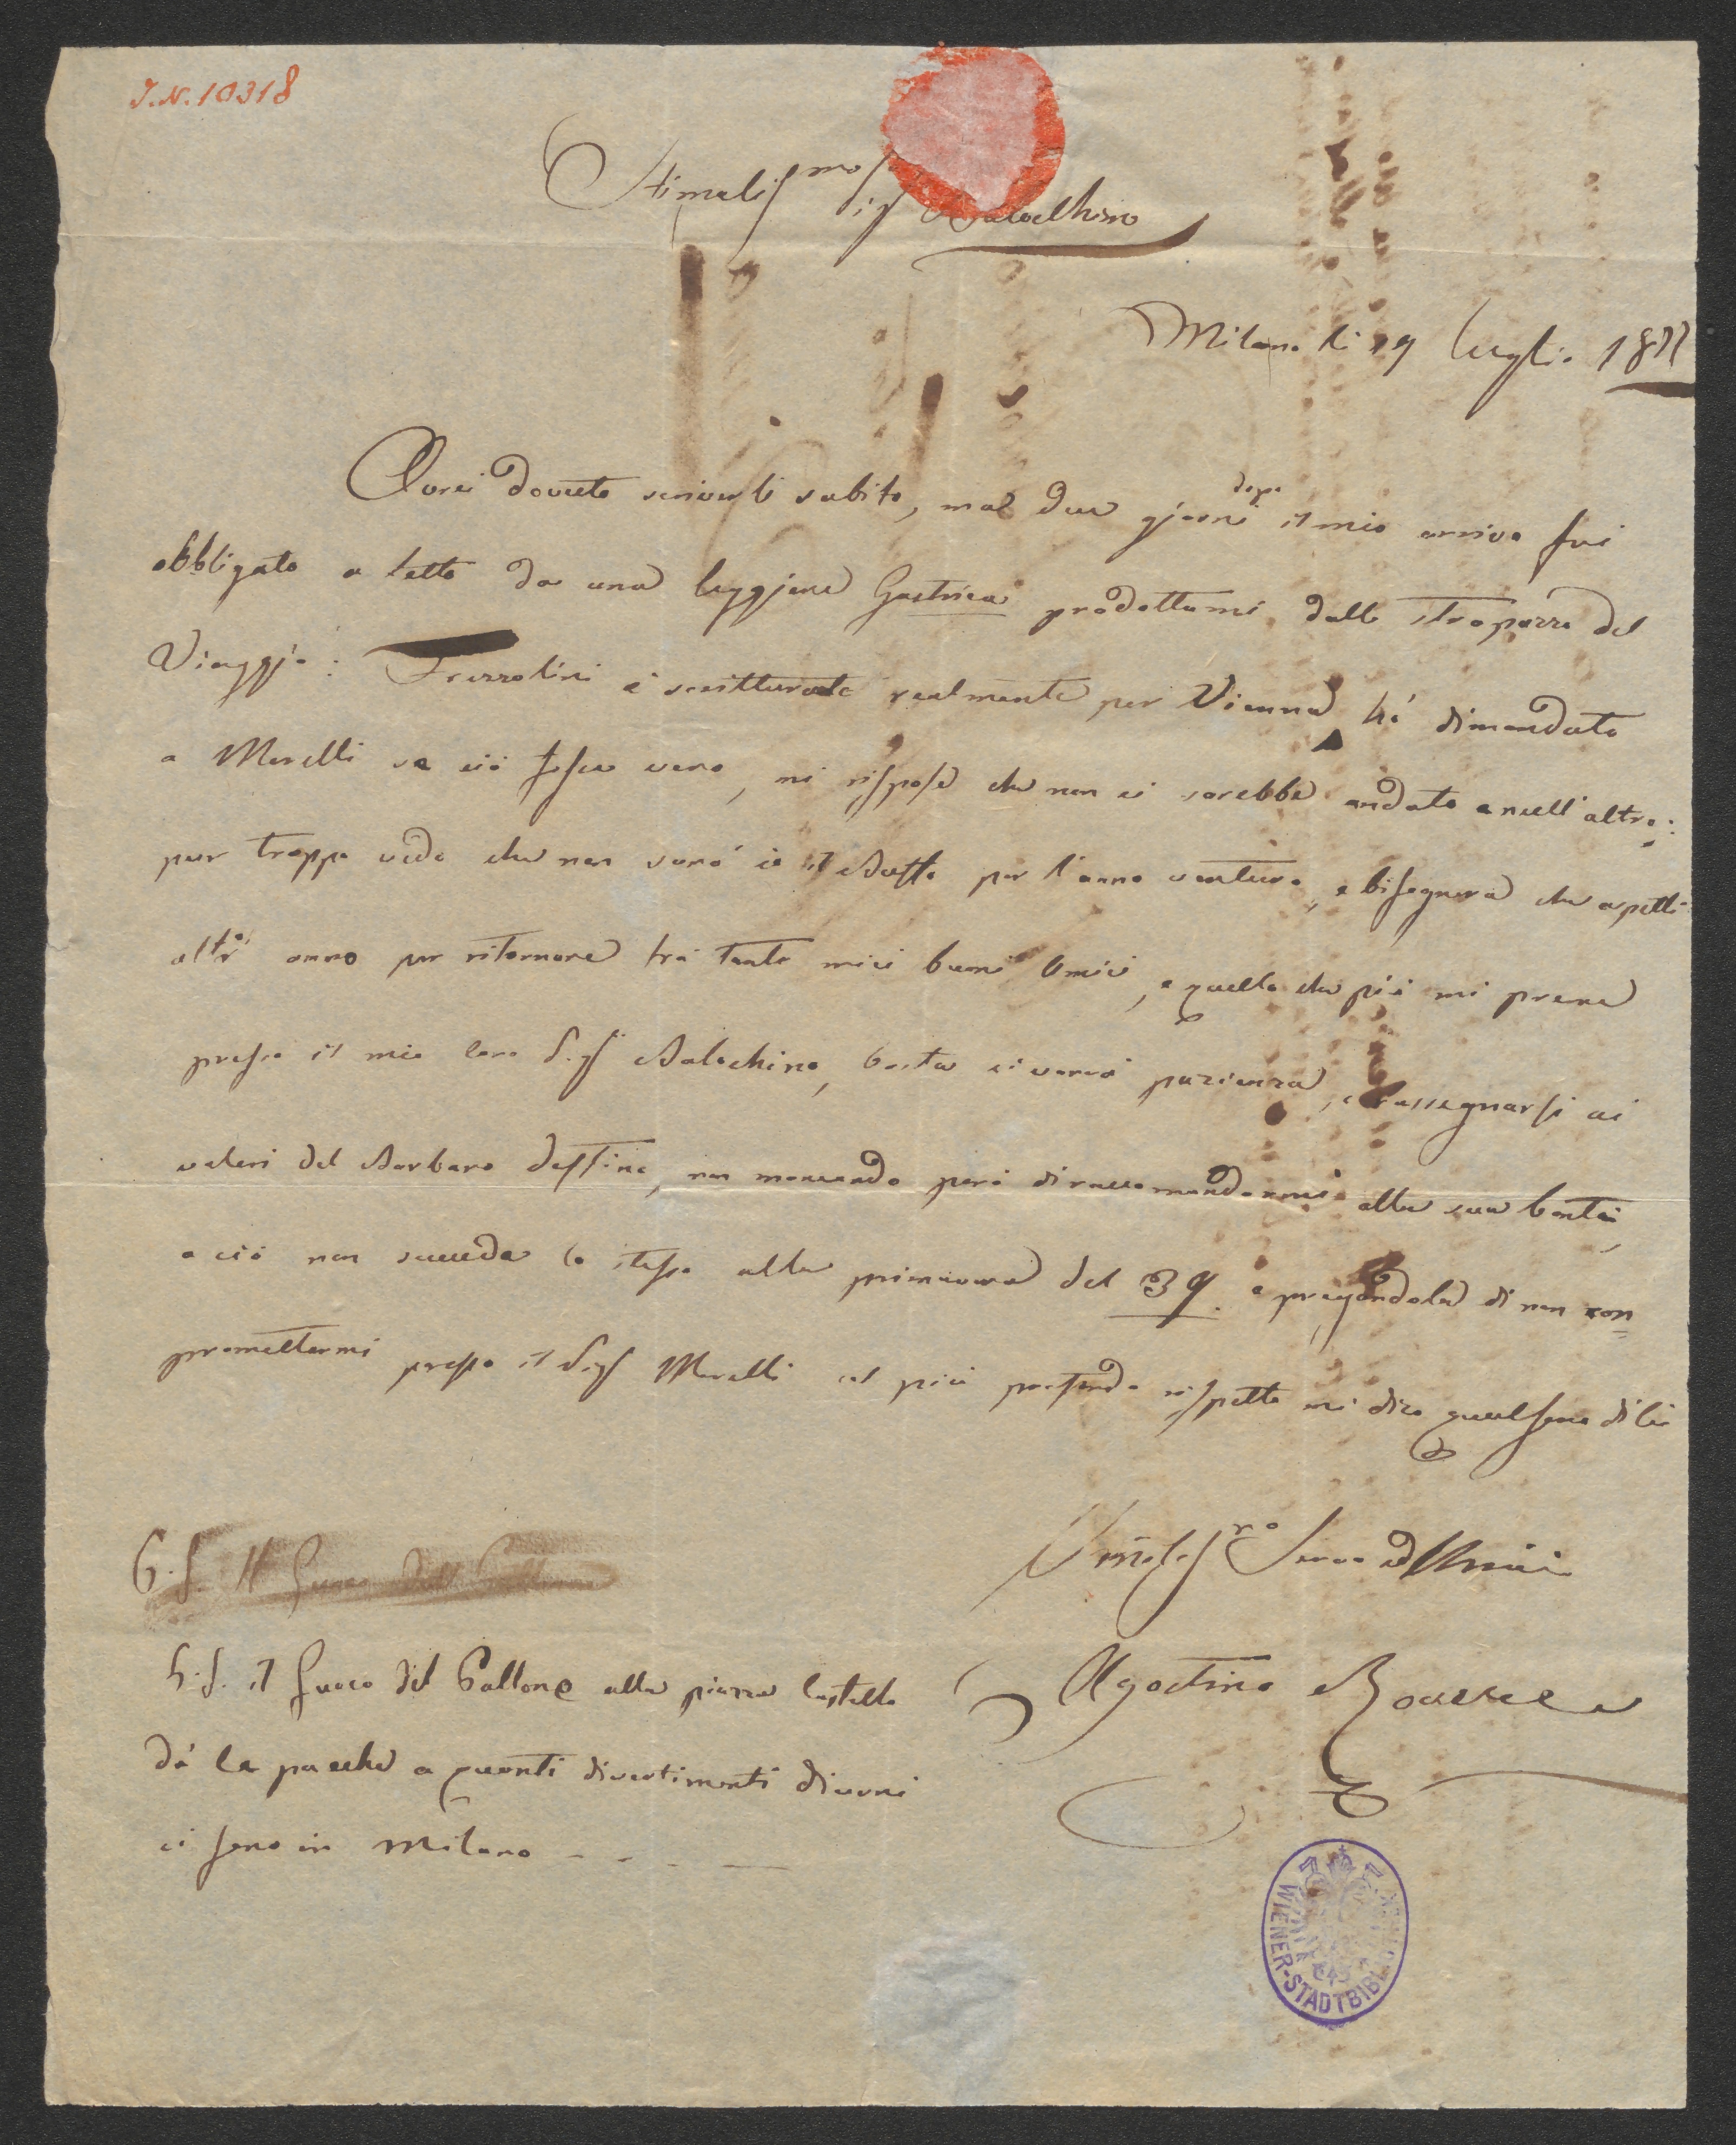 I.N. 10318
Stimatiss.mo Sig Balochino
Milano li 19 luglio 18
Avrei dovuto scriverli subito, ma due giorni dopo il mio arrivo fui
obbligato a letto da una leggiera Gastrica prodottami dallo strapazzo del
Viaggio: Frezzolini è scritturato realmente per Vienna hò dimandato
a Merelli se ciò fosse vero, mi rispose che non ci sarebbe andato a null'altro:
pur troppo vedo che non sarò io il Buffo per l'anno venturo, e bisognerà che aspetti
altro anno per ritornare trà tanti miei buoni Amici, e quello che più mi preme
presso il mio Caro Sig. Balochino, basta ci vorrà pazienza, e rassegnarsi ai
voleri del Barbaro destino, non mancando però di raccomandarmi alla sua bontà,
a ciò non succeda lo stesso alla primavera del 39. e pregandola di non com
promettermi presso il Sig Merelli col più profondo rispetto mi dico qual sono di lei
P.S. Il Giuoco del Pallone
Umiliss.mo Servo ed Amico
Agostino Rovere
P.S. il Giuoco del Pallone alla piazza Castello
dà le pacche a quanti divertimenti diurni
ci sono in Milano - - - -
WIENER-STADTBIBL